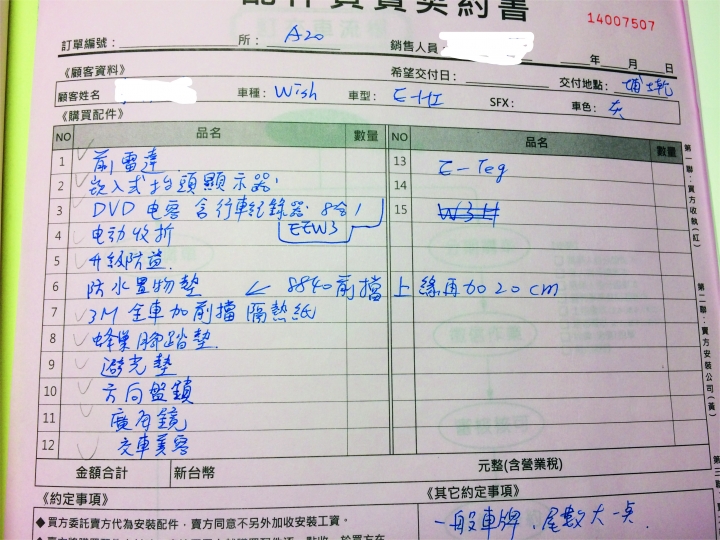 配件買賣契約書
14007507
訂單編號： 所： A20 銷售人員： 年 月 日
《顧客資料》 希望交付日： 交付地點： 埔土乾
顧客姓名 車種： Wish 車型： E-HI SFX： 車色： 灰
《購買配件》
NO 品名 數量 NO 品名 數量
1 前雷達 13 E-Teg
2 崁入式抬頭顯示器 14
3 DVD 电容 含行車紀錄器 8合1 15 W3H
EEW3
4 电动收折
5 升級防盜
6 防水置物墊 ↙ 8840前擋上緣再加20cm
7 3M 全車加前擋隔熱紙
8 蜂巢腳踏墊
9 避光墊
10 方向盤鎖
11 廣角鏡
12 交車美容
金額合計 新台幣 元整(含營業稅)
《約定事項》 《其它約定事項》
◆買方委託賣方代為安裝配件，賣方同意不另外加收安裝工資。
一般車牌、尾數大一点
第一聯：買方收執(紅)
第二聯：賣方安裝公司(黃)